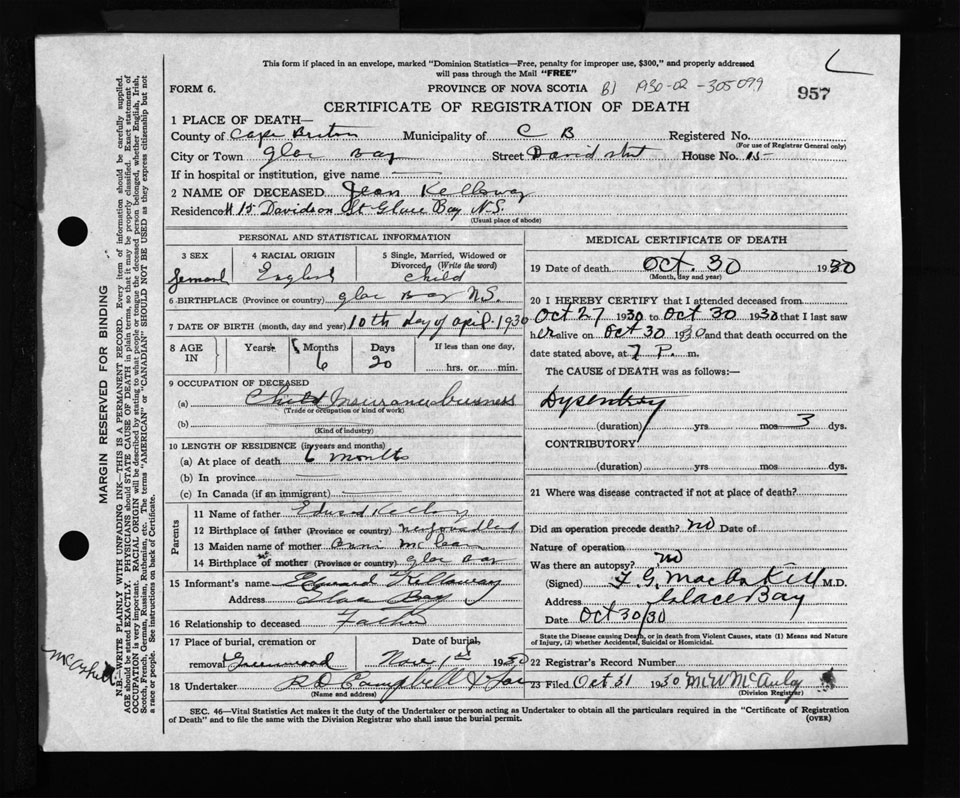 This form if placed in an envelope, marked "Dominion Statistics—Free, penalty for improper use, $300," and properly addressed
will pass through the Mail "FREE"
FORM 6. PROVINCE OF NOVA SCOTIA B1 1930-02-305099
957
CERTIFICATE OF REGISTRATION OF DEATH
1 PLACE OF DEATH—
County of Cape Breton Municipality of C B Registered No.
(For use of Registrar General only)
City or Town Glac Bay Street David St House No. 15
If in hospital or institution, give name
2 NAME OF DECEASED Jean Kelloway
Residence # 15 Davidson St Glace Bay N.S.
(Usual place of abode)
PERSONAL AND STATISTICAL INFORMATION
3 SEX 4 RACIAL ORIGIN 5 Single, Married, Widowed or
Divorced (Write the word)
English Child
6 BIRTHPLACE (Province or country) glac Bay N.S.
7 DATE OF BIRTH (month, day and year) 10th day of april 1930
8 AGE IN Years Months Days If less than one day,
6 20 hrs. or min.
9 OCCUPATION OF DECEASED
(a) Child Insurance business
(Trade or occupation or kind of work)
(b)
(Kind of industry)
10 LENGTH OF RESIDENCE (in years and months)
(a) At place of death 6 months
(b) In province
(c) In Canada (if an immigrant)
Parents
11 Name of father
12 Birthplace of father (Province or country)
13 Maiden name of mother
14 Birthplace of mother (Province or country) glac Bay
15 Informant's name Edward Kelloway
Address Glace Bay
16 Relationship to deceased Father
17 Place of burial, cremation or Date of burial,
removal Greenwood Nov 1st 1930
18 Undertaker R D Campbell & Son
(Name and address)
MEDICAL CERTIFICATE OF DEATH
19 Date of death Oct. 30 1930
(Month, day and year)
20 I HEREBY CERTIFY that I attended deceased from
Oct 27 1930 to Oct 30 1930 that I last saw
her alive on Oct 30 1930 and that death occurred on the
date stated above, at 7 P. m.
The CAUSE of DEATH was as follows:—
Dysentry
(duration) yrs mos 3 dys.
CONTRIBUTORY
(duration) yrs. mos. dys.
21 Where was disease contracted if not at place of death?
Did an operation precede death? no Date of
Nature of operation
Was there an autopsy? no
(Signed) M.D.
Address Glace Bay
Date Oct 30/30
State the Disease causing Death, or in death from Violent Causes, state (1) Means and Nature
of Injury, (2) whether Accidental, Suicidal or Homicidal.
22 Registrar's Record Number
23 Filed Oct 31 1930 M W McAuley
(Division Registrar)
SEC. 46—Vital Statistics Act makes it the duty of the Undertaker or person acting as Undertaker to obtain all the particulars required in the "Certificate of Registration
of Death" and to file the same with the Division Registrar who shall issue the burial permit. (OVER)
MARGIN RESERVED FOR BINDING
N.B.—WRITE PLAINLY WITH UNFADING INK—THIS IS A PERMANENT RECORD. Every item of information should be carefully supplied.
AGE should be stated EXACTLY. PHYSICIANS should STATE CAUSE OF DEATH in plain terms, so that it may be properly classified. Exact statement of
OCCUPATION is very important. RACIAL ORIGIN will be described by stating to what people or tongue the deceased person belonged, whether English, Irish,
Scotch, French, German, Russian, Ruthenian, etc. The terms "AMERICAN" or "CANADIAN" SHOULD NOT BE USED as they express citizenship but not
a race or people. See instructions on back of Certificate.